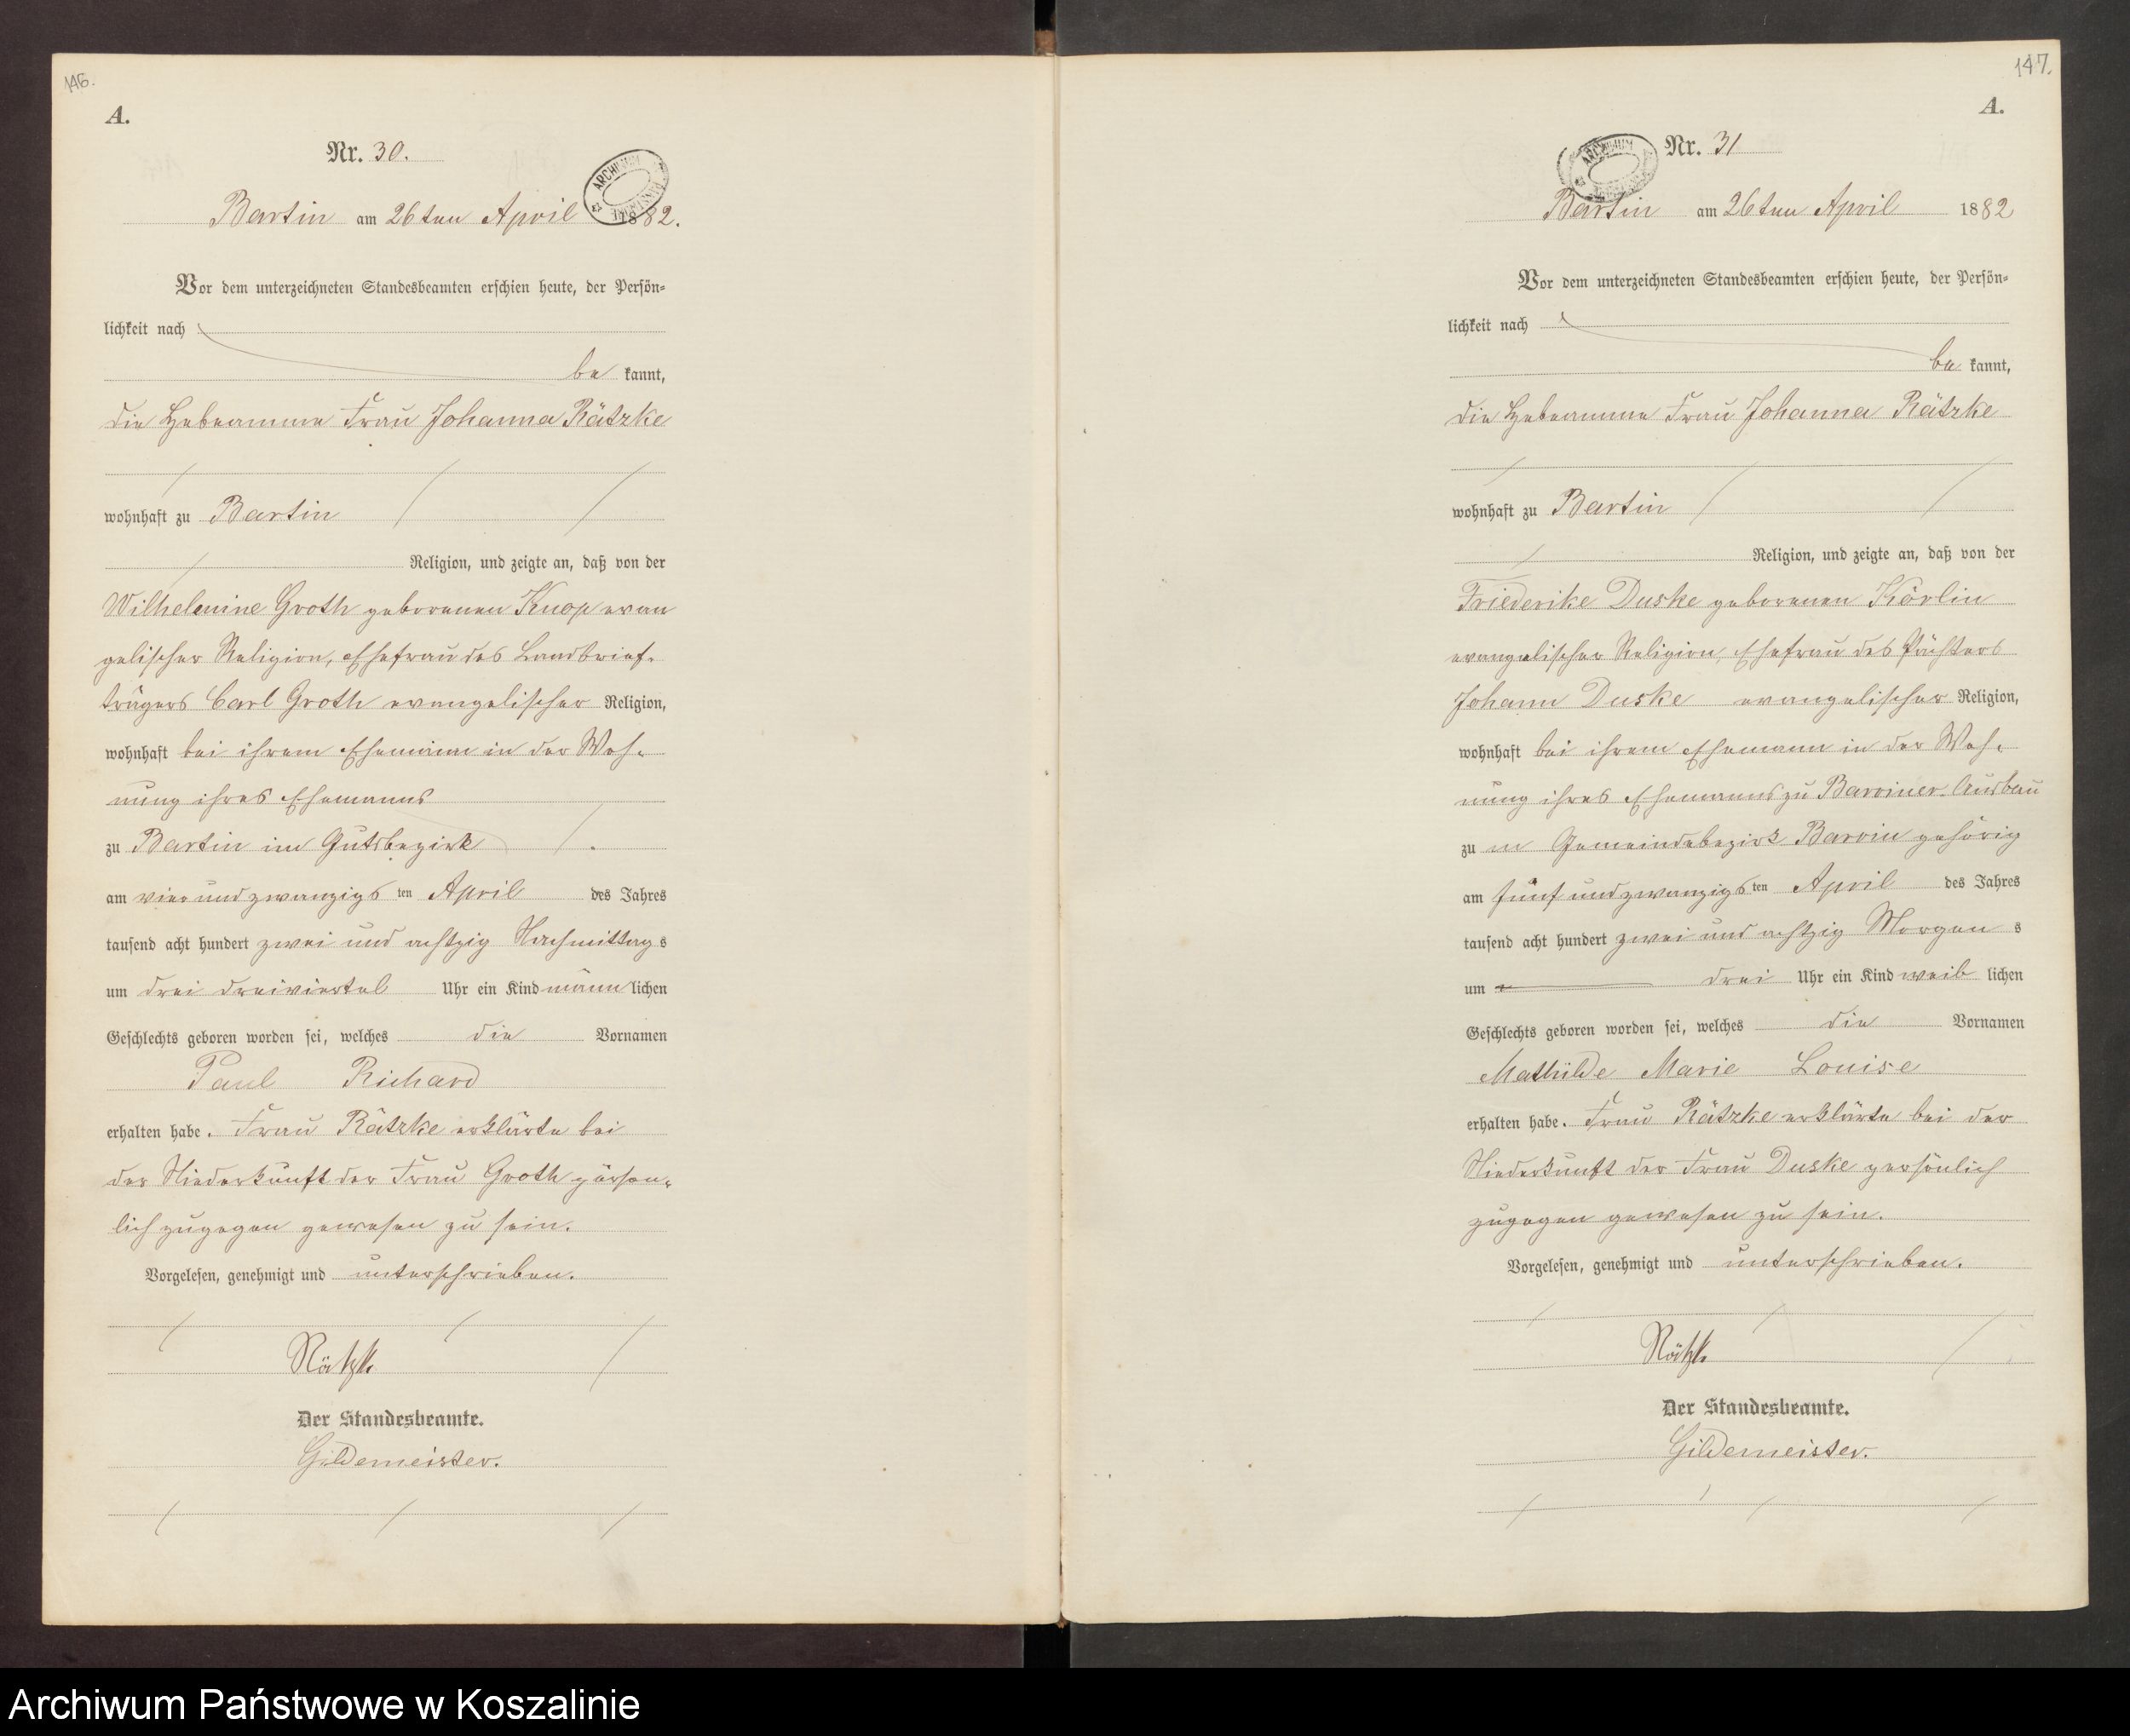 146.
A.
Nr. 30.
ARCHIWUM
Bartin am 26ten April 1882.
Vor dem unterzeichneten Standesbeamten erschien heute, der Persön-
lichkeit nach
be kannt,
die Hebeamme Frau Johanna Rätzke
wohnhaft zu Bartin
Religion, und zeigte an, daß von der
Wilhelmine Groth geborenen Knop evan
gelischer Religion, Ehefrau des Landbrief-
trägers Carl Groth evangelischer Religion,
wohnhaft bei ihrem Ehemann in der Woh-
nung ihres Ehemanns
zu Bartin im Gutsbezirk
am vier und zwanzigs ten April des Jahres
tausend acht hundert zwei und achtzig Nachmittag s
um drei dreiviertel Uhr ein Kind männ lichen
Geschlechts geboren worden sei, welches die Vornamen
Paul Richard
erhalten habe. Frau Rätzke erklärte bei
der Niederkunft der Frau Groth pärsön-
lich zugegen gewesen zu sein.
Vorgelesen, genehmigt und unterschrieben.
Rätzk
Der Standesbeamte.
Gildemeister.
147.
A.
Nr. 31
ARCHIWUM
Bartin am 26ten April 1882
Vor dem unterzeichneten Standesbeamten erschien heute, der Persön-
lichkeit nach
be kannt,
die Hebeamme Frau Johanna Rätzke
wohnhaft zu Bartin
Religion, und zeigte an, daß von der
Friederike Duske geborenen Körlin
evangelischer Religion, Ehefrau des Pächters
Johann Duske evangelischer Religion,
wohnhaft bei ihrem Ehemann in der Woh-
nung ihres Ehemanns zu Barviner Ausbau
zu m Gemeindebezirk Barvin gehörig
am fünf und zwanzigs ten April des Jahres
tausend acht hundert zwei und achtzig Morgen s
um drei Uhr ein Kind weib lichen
Geschlechts geboren worden sei, welches die Vornamen
Mathilde Marie Louise
erhalten habe. Frau Rätzke erklärte bei der
Niederkunft der Frau Duske persönlich
zugegen gewesen zu sein.
Vorgelesen, genehmigt und unterschrieben.
Rätzk
Der Standesbeamte.
Gildemeister.
Archiwum Państwowe w Koszalinie